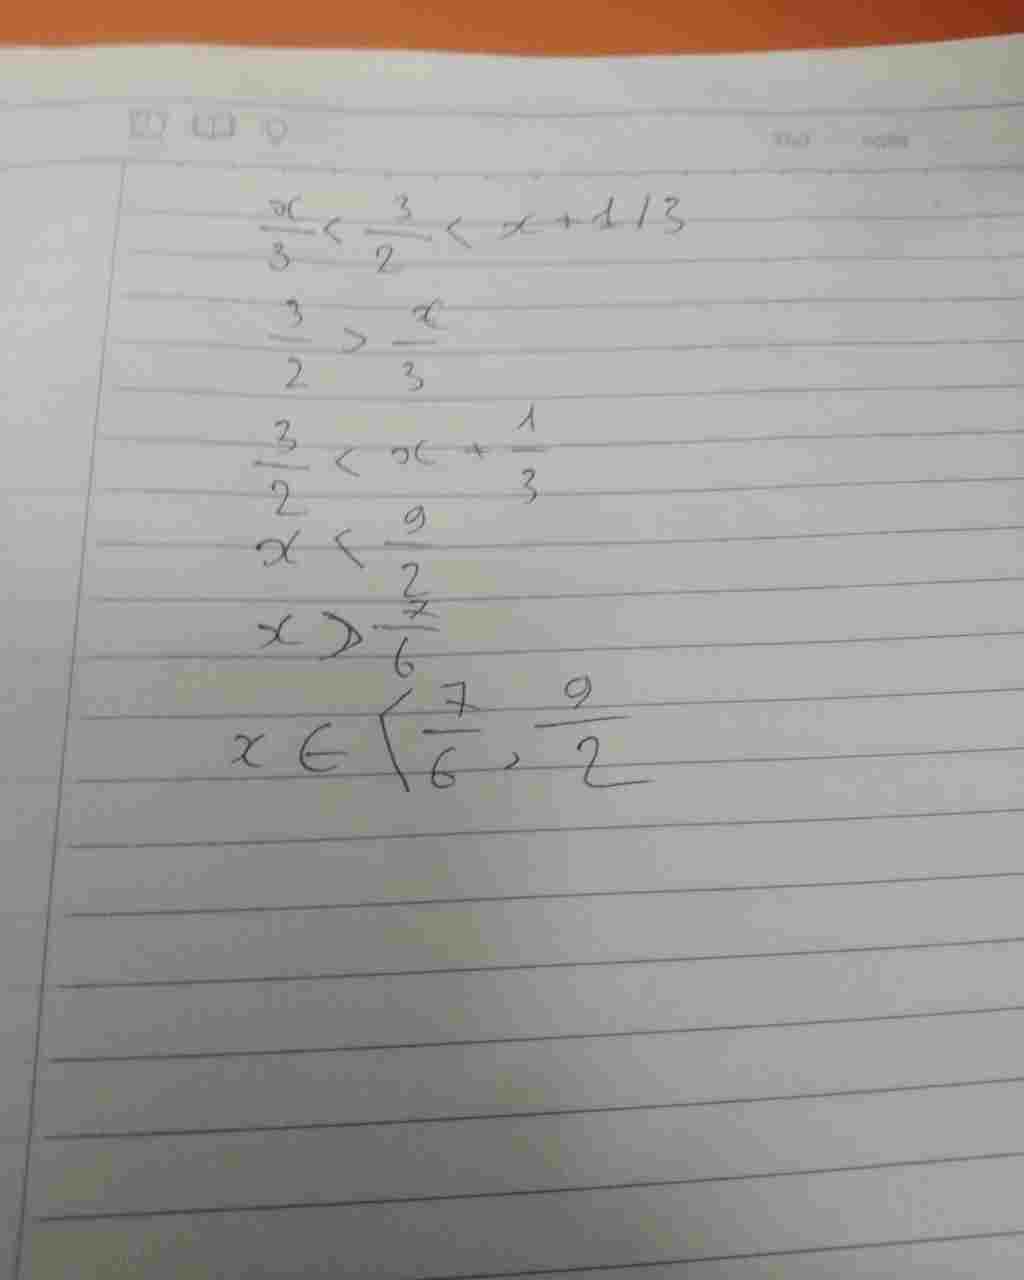 x/3 < 3/2 < x + 1/3
3/2 > x/3
3/2 < x + 1/3
x < 9/2
x > 7/6
x ∈ ⟨7/6, 9/2